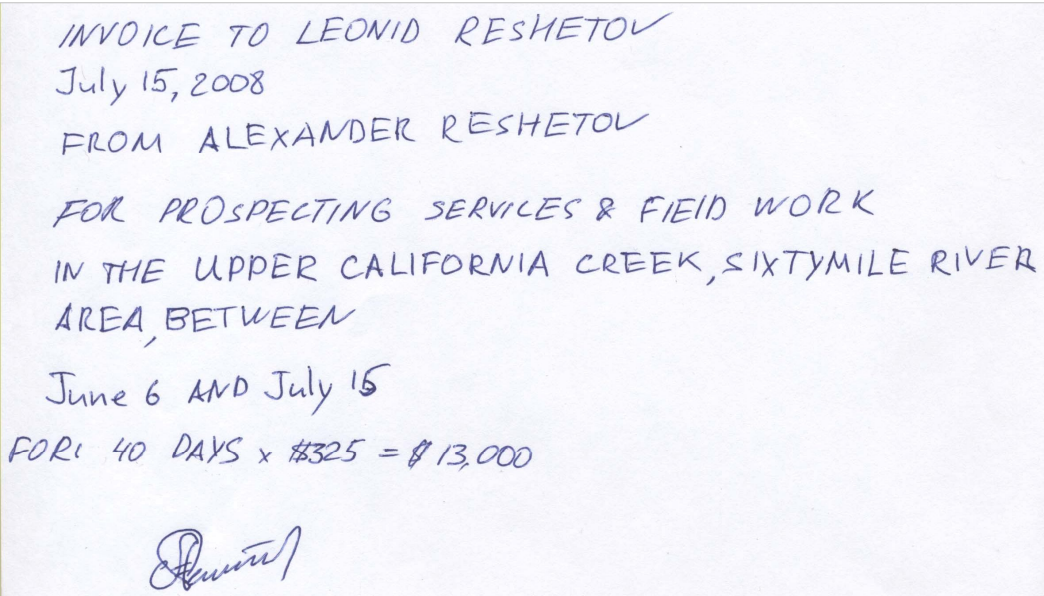 INVOICE TO LEONID RESHETOV
July 15, 2008
FROM ALEXANDER RESHETOV
FOR PROSPECTING SERVICES & FIELD WORK
IN THE UPPER CALIFORNIA CREEK, SIXTYMILE RIVER
AREA, BETWEEN
June 6 AND July 15
FOR: 40 DAYS x $325 = $13,000